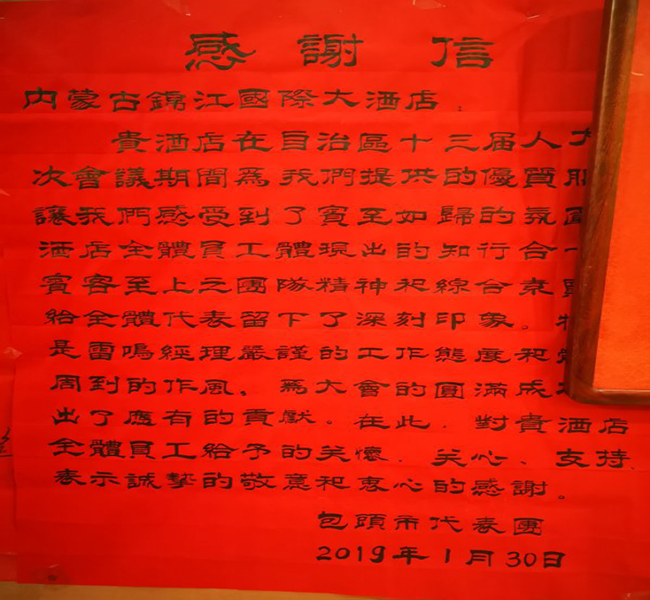 感謝信
内蒙古錦江國際大酒店：
貴酒店在自治區十三届人
次會議期間為我們提供的優質
讓我們感受到了賓至如歸的氛
酒店全體員工體現出的知行合一
賓客至上之團隊精神和綜合素
給全體代表留下了深刻印象。
是雷鳴經理嚴謹的工作態度和
周到的作風，為大會的圓滿成
出了應有的貢獻。在此，對貴酒店
全體員工給予的关懷、关心、支持，
表示誠摯的敬意和衷心的感謝。
包頭市代表團
2019年1月30日